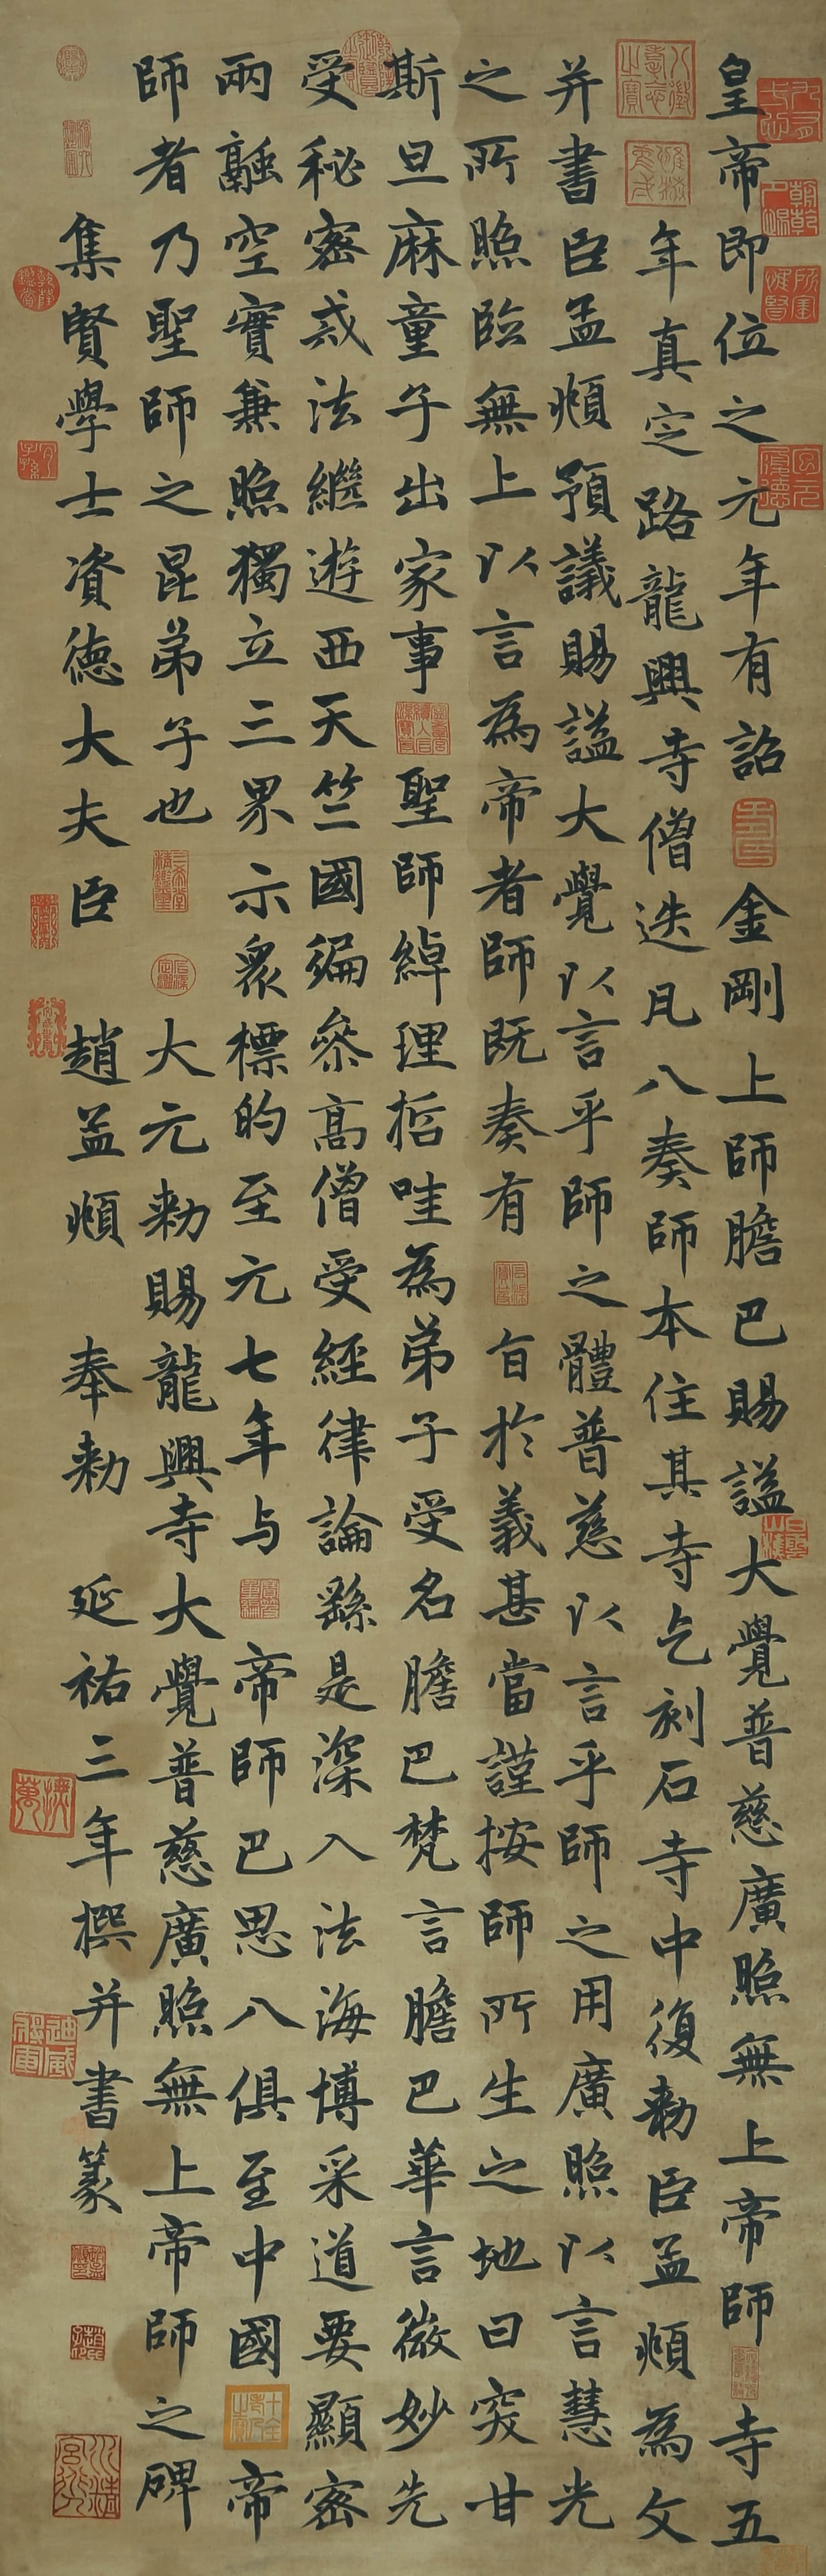 皇帝即位之元年有詔金剛上師膽巴賜謚大覺普慈廣照無上帝師寺五
年真定路龍興寺僧迭凡八奏師本住其寺乞刻石寺中復勑臣孟頫為文
并書臣孟頫預議賜謚大覺以言乎師之體普慈以言乎師之用廣照以言慧光
之所照臨無上以言為帝者師既奏有旨於義甚當謹按師所生之地曰突甘
斯旦麻童子出家事聖師綽理哲哇為弟子受名膽巴梵言膽巴華言微妙先
受秘密戒法繼遊西天竺國徧參高僧受經律論繇是深入法海博采道要顯密
兩融空實兼照獨立三界示眾標的至元七年与帝師巴思八俱至中國帝
師者乃聖師之昆弟子也大元勑賜龍興寺大覺普慈廣照無上帝師之碑
集賢學士資德大夫臣趙孟頫奉勑延祐三年撰并書篆